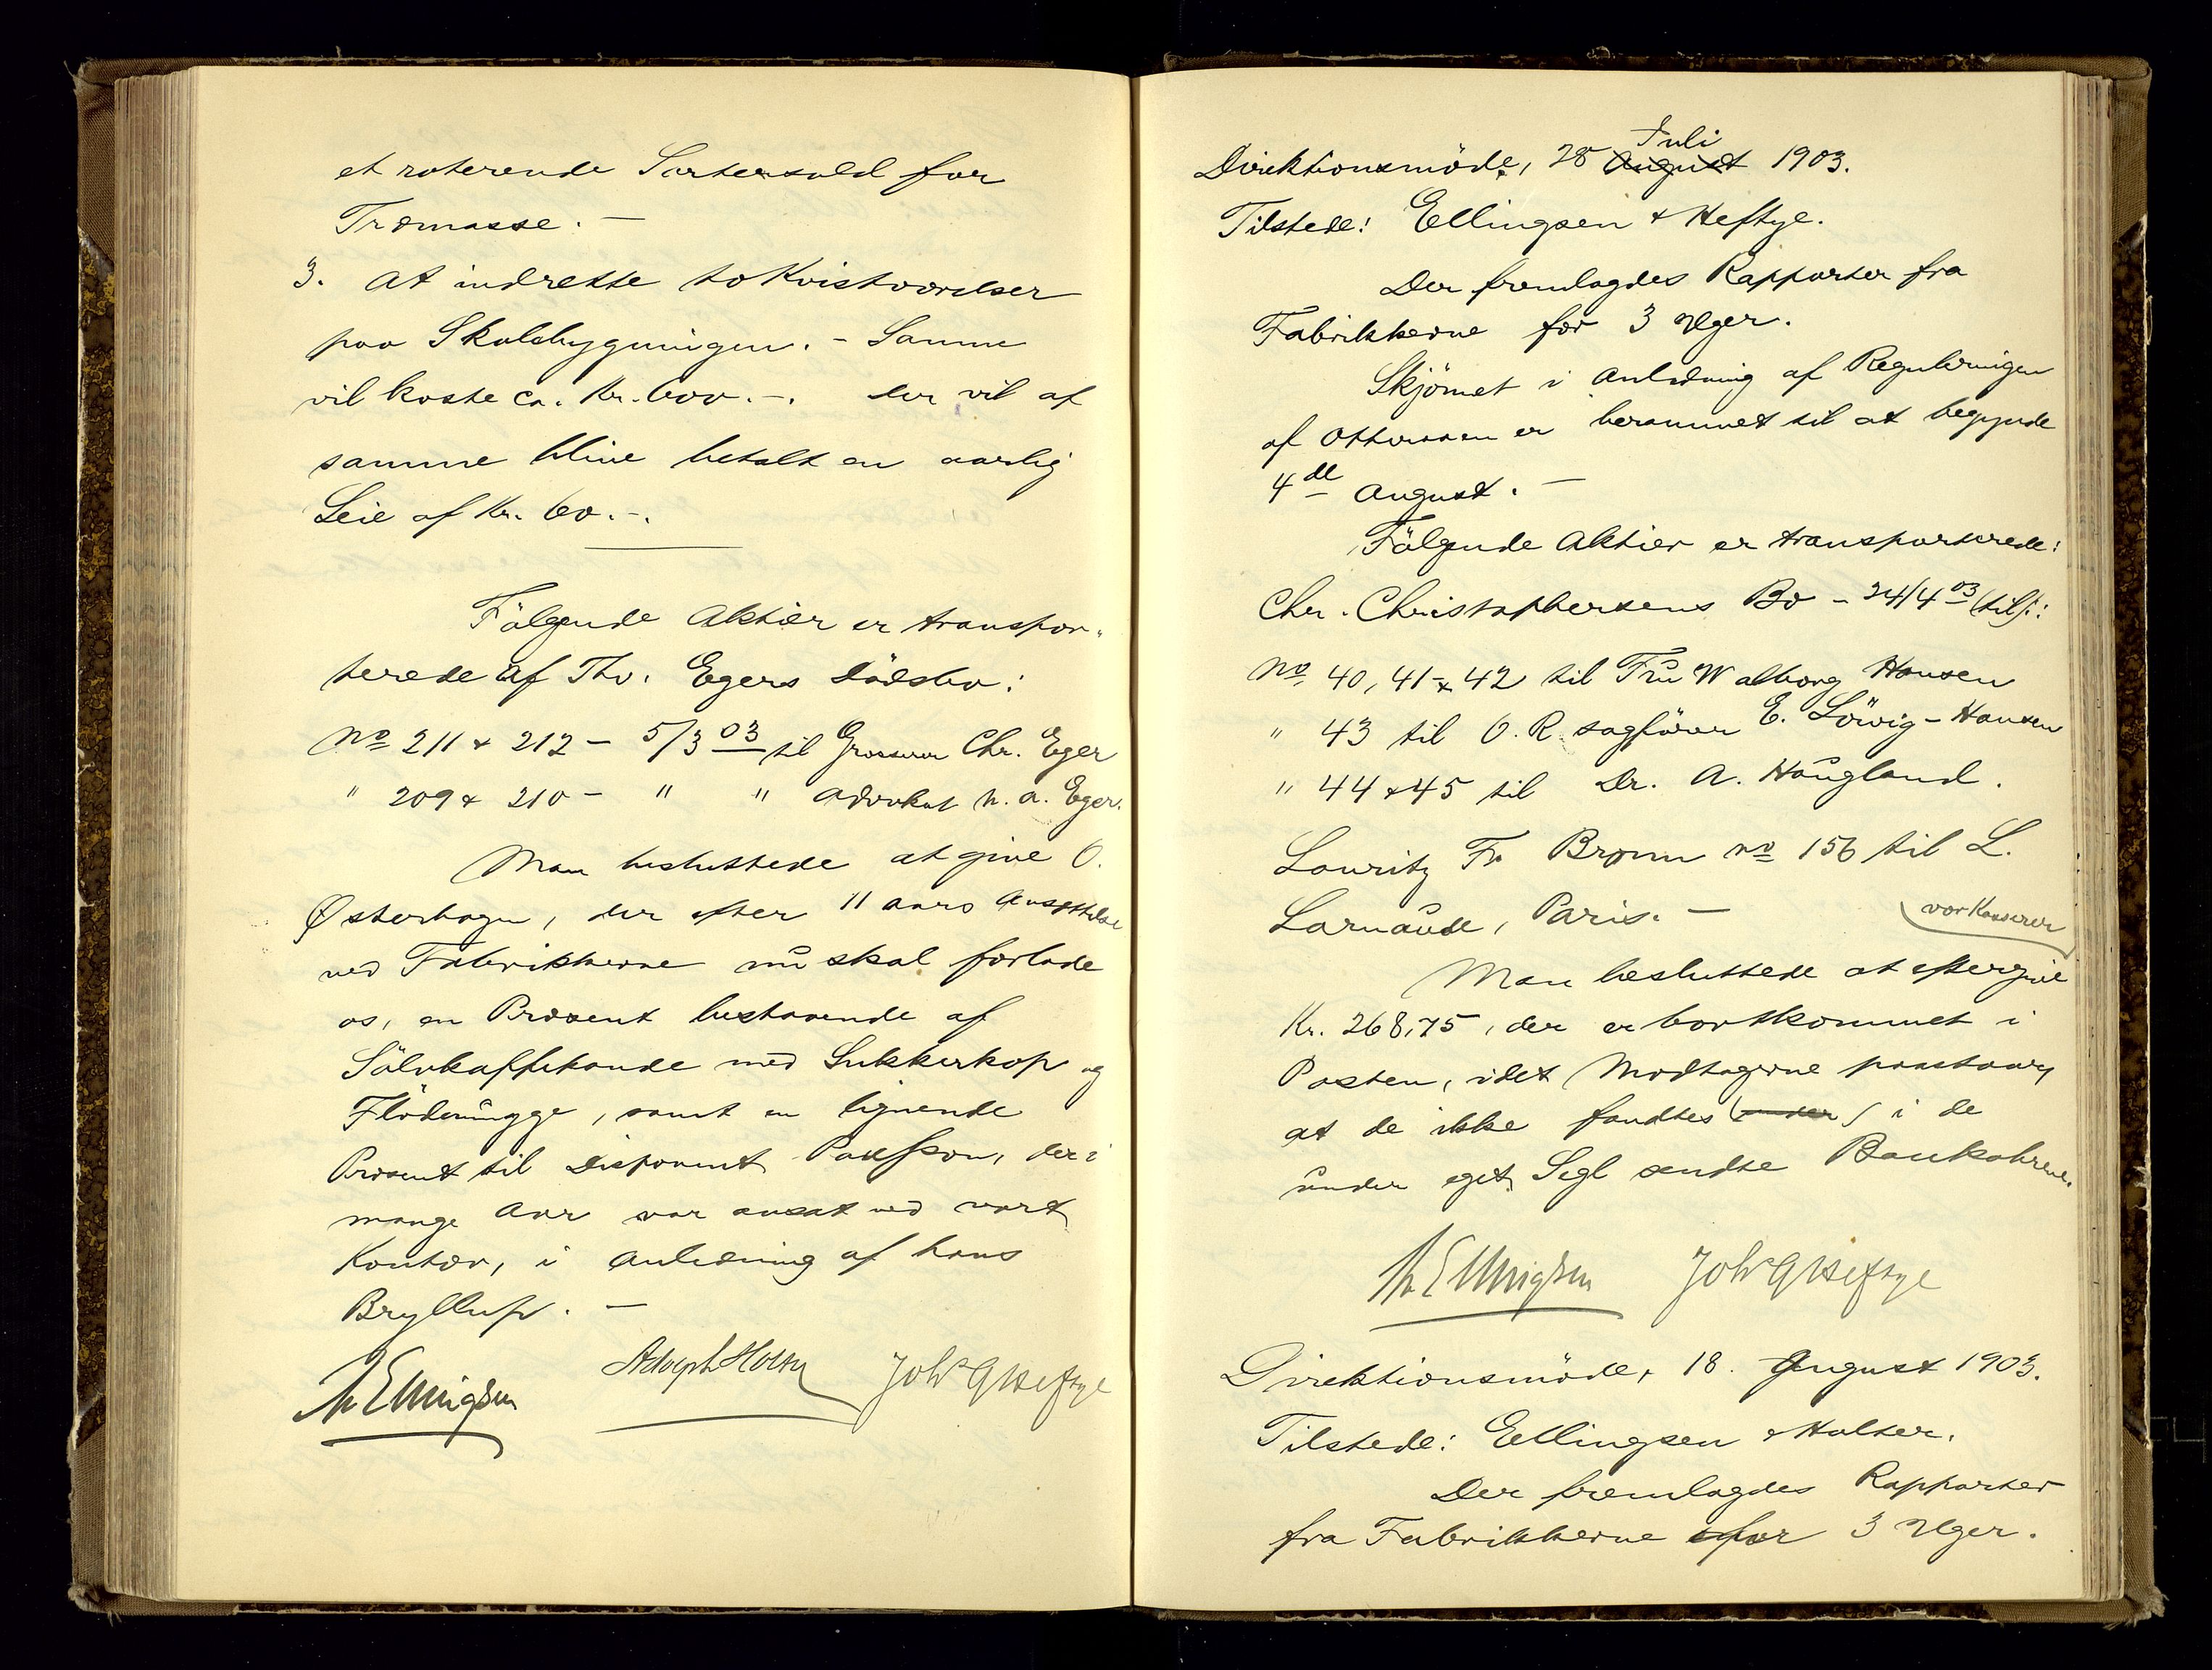 et roterende Sortersold for
Træmasse. —
3. At indrette to Kvistværelser
paa Skolebygningen. – Samme
vil koste ca. Kr. 600.–. Der vil af
samme blive betalt en aarlig
Leie af Kr. 60.–.
Følgende Aktier er transpor-
terede af Thv. Egers Dødsbo:
No 211 & 212 – 5/3 03 til Grosserer Chr. Eger
" 209 & 210 – " " Advokat N. A. Eger.
Man besluttede at give O.
Østerhagen, der efter 11 Aars Ansættelse
ved Fabrikkerne nu skal forlade
os, en Præsent bestaaende af
Sölvkaffekande med Sukkerkop og
Flödemugge, samt en lignende
Præsent til Disponent Paulsson, der i
mange Aar var ansat ved vort
Kontor, i Anledning af hans
Bryllup. —
Th Ellingsen Adolph Holter Joh G Heftye
Direktionsmöde, 28 Juli August 1903.
Tilstede: Ellingsen & Heftye.
Der fremlagdes Rapporter fra
Fabrikkerne for 3 Uger.
Skjönnet i Anledning af Reguleringen
af Otteraaen er berammet til at begynde
4de August. —
Fölgende Aktier er transporterede:
Chr. Christophersens Bo – 24/4 03 (til):
No 40, 41 & 42 til Fru Walborg Hansen
" 43 til O. R. sagförer E. Lövig-Hansen
" 44 & 45 til Dr. A. Haugland.
Lauritz Fr Broun no 156 til L.
Larnaude, Paris. —
vor Kasserer
Man besluttede at eftergive
Kr. 268,75, der er bortkommet i
Posten, idet Modtagerne paastaar,
at de ikke fandtes (under) i de
under eget Segl sendte Bankohrene.
Th Ellingsen Joh G Heftye
Direktionsmöde, 18. August 1903.
Tilstede: Ellingsen & Holter.
Der fremlagdes Rapporter
fra Fabrikkerne for 3 Uger.